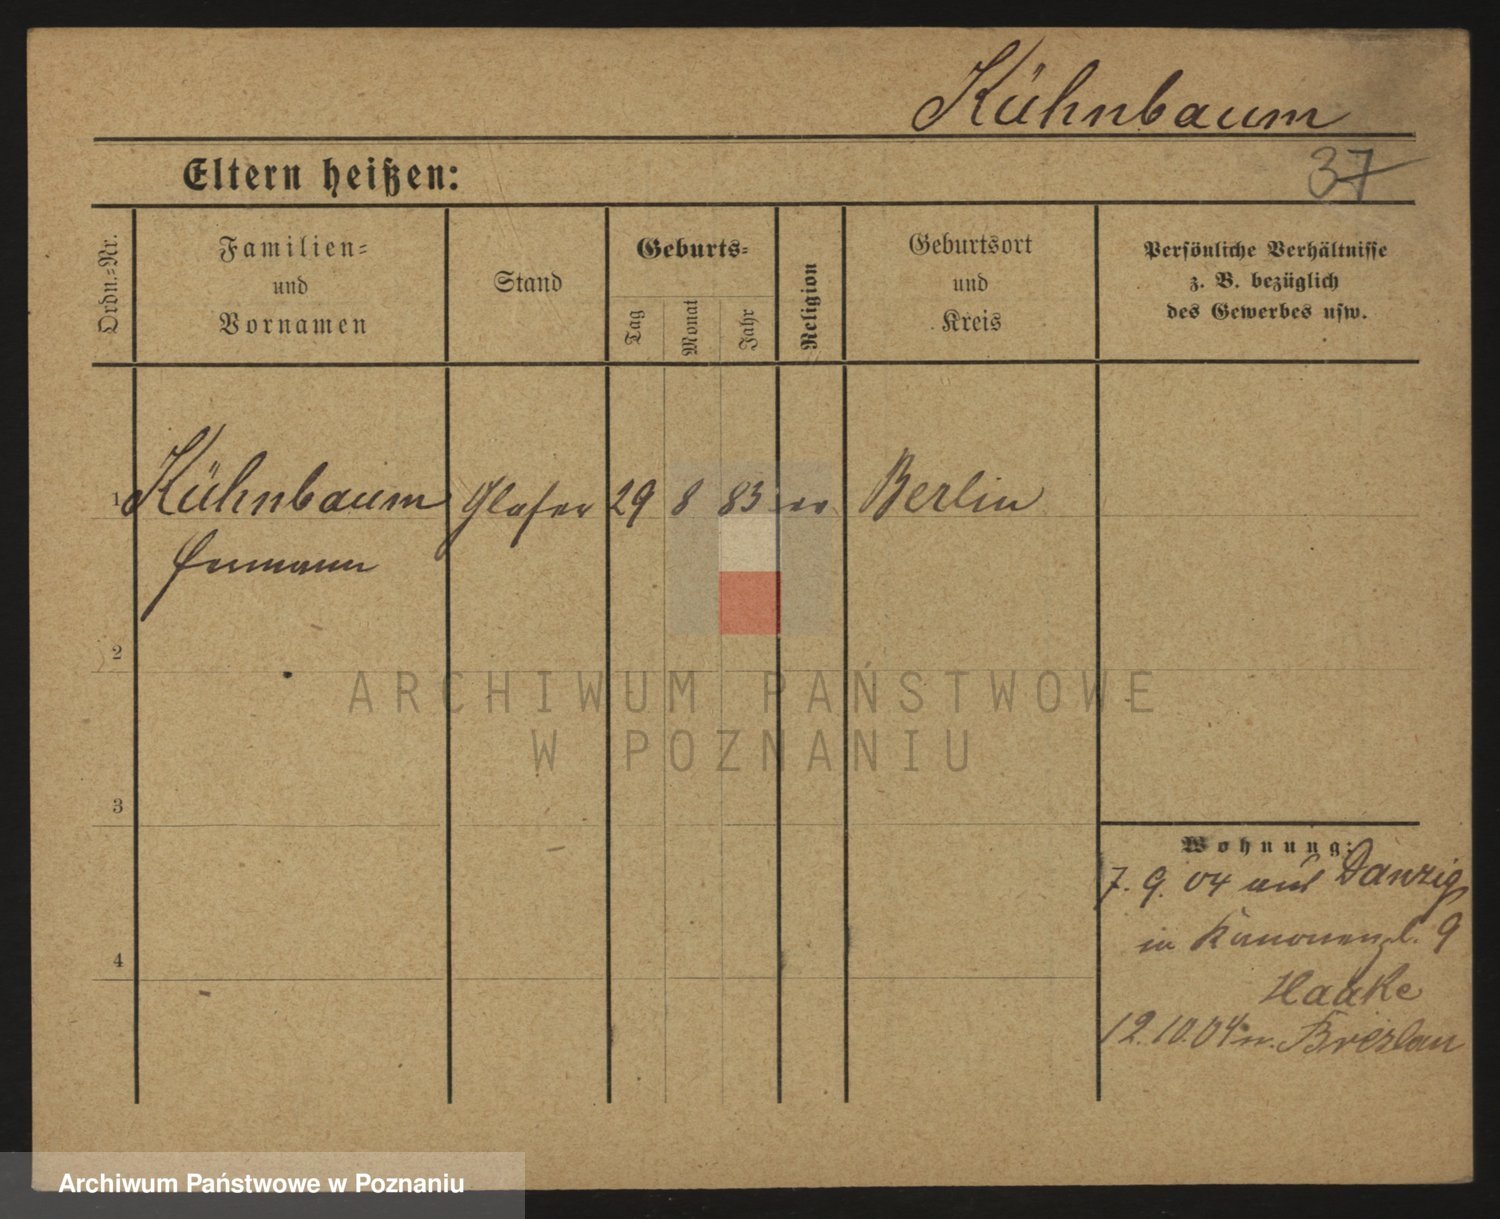 Kühnbaum
Eltern heißen:
37
Ordn.=Nr.
Familien=
und
Vornamen
Stand
Geburts=
Tag
Monat
Jahr
Religion
Geburtsort
und
Kreis
Persönliche Verhältnisse
z. B. bezüglich
des Gewerbes usw.
1 Kühnbaum Glaser 29 8 83 ev Berlin
2
3
4
Wohnung:
7. 9. 04 aus Danzig
in Kanonenpl. 9
Haake
12.10.04 n. Breslau
ARCHIWUM PAŃSTWOWE
W POZNANIU
Archiwum Państwowe w Poznaniu